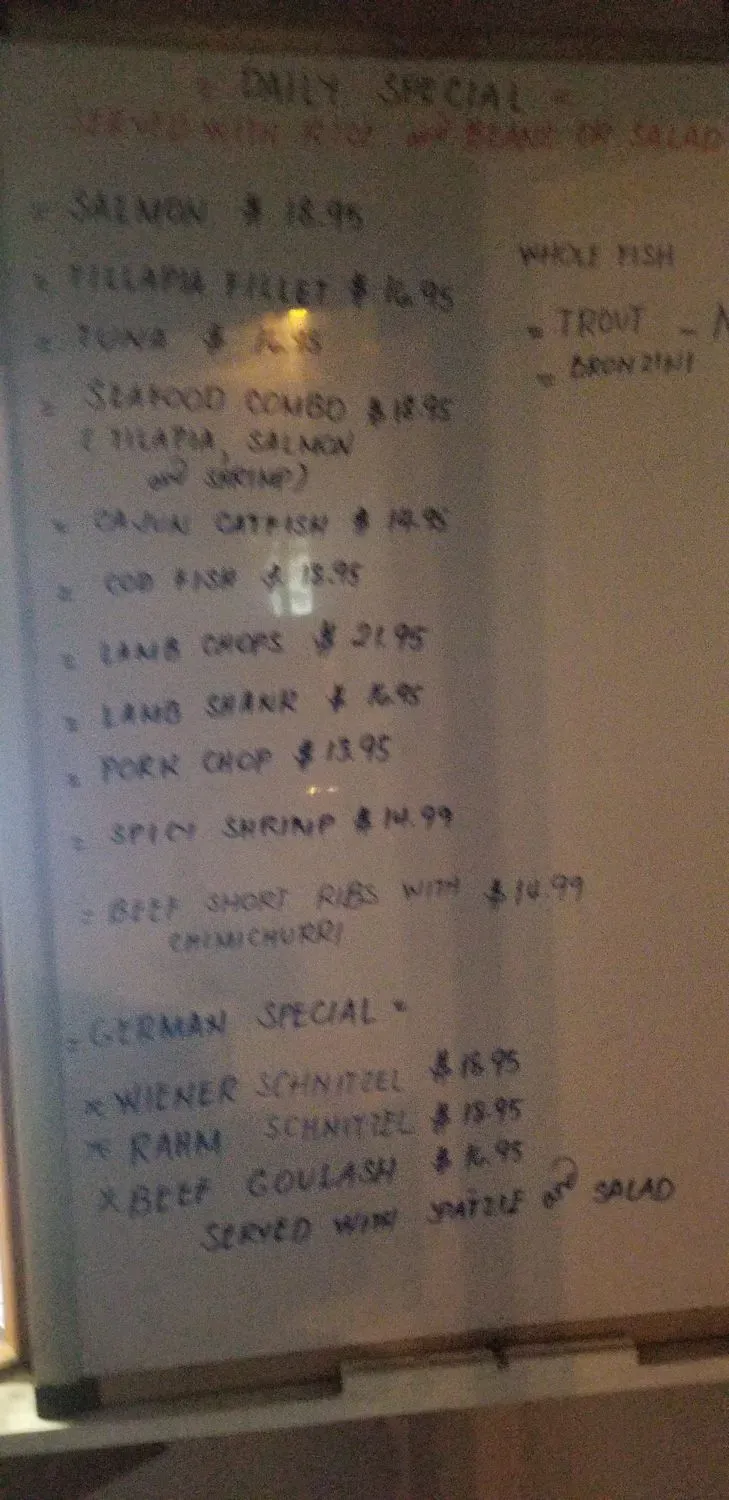 = DAILY SPECIAL =
SERVED WITH RICE and BEANS OR SALAD
= SALMON $ 18.95
= TILLAPIA FILLET $ 16.95
= TUNA $
= SEAFOOD COMBO $ 18.95
( TILAPIA, SALMON
and SHRIMP)
= CAJUN CATFISH $ 14.95
= COD FISH $ 13.95
= LAMB CHOPS $ 21.95
= LAMB SHANK $ 16.95
= PORK CHOP $ 13.95
= SPICY SHRIMP $ 14.99
= BEEF SHORT RIBS WITH $ 14.99
CHIMICHURRI
WHOLE FISH
= TROUT -
= BRONZINI
= GERMAN SPECIAL =
* WIENER SCHNITZEL $
* RAHM SCHNITZEL $ 18.95
* BEEF GOULASH $ 16.95
SERVED WITH SPATZLE and SALAD